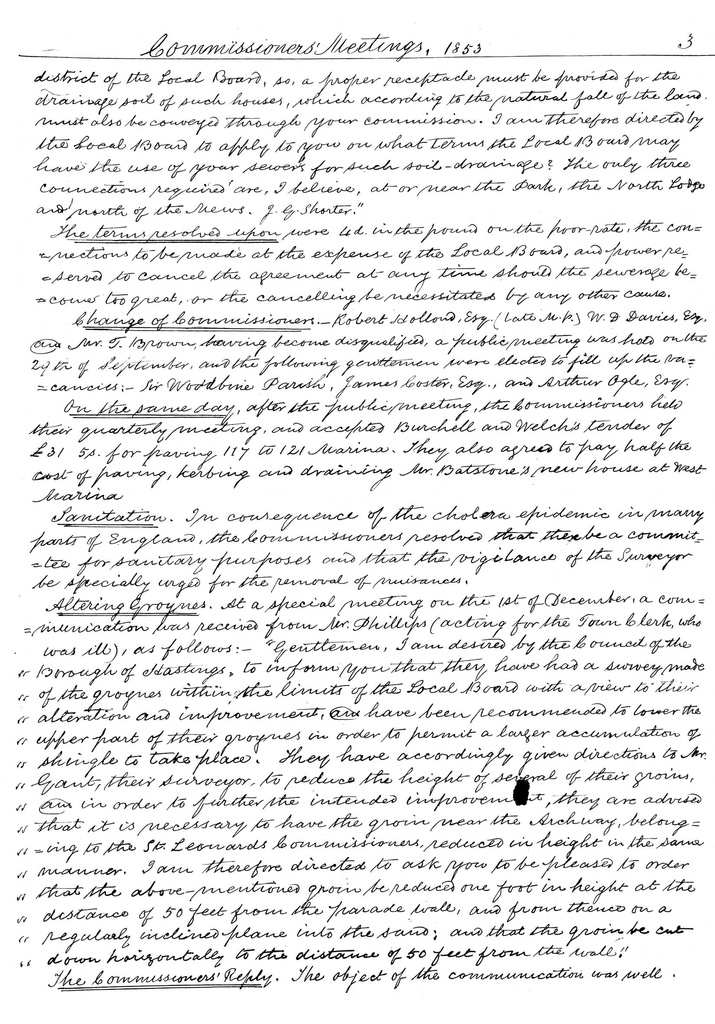 Commissioners' Meetings, 1853 3
district of the Local Board, so, a proper receptacle must be provided for the
drainage soil of such houses, which according to the natural fall of the land
must also be conveyed through your commission. I am therefore directed by
the Local Board to apply to you on what terms the Local Board may
have the use of your sewers for such soil-drainage? The only three
connections required are, I believe, at or near the Park, the North Lodge
and north of the Mews. J. G. Shorter."
The terms resolved upon were 4d. in the pound on the poor-rate, the con=
=nections to be made at the expense of the Local Board, and power re=
=served to cancel the agreement at any time should the sewerage be=
=come too great, or the cancelling be necessitated by any other cause.
Change of Commissioners. – Robert Hollond, Esq. (late M.P.) W. D. Davies, Esq.
and Mr. T. Brown, having become disqualified, a public meeting was held on the
29th of September, and the following gentlemen were elected to fill up the va=
=cancies:– Sir Woodbine Parish, James Coster, Esq., and Arthur Ogle, Esq.
On the same day, after the public meeting, the Commissioners held
their quarterly meeting, and accepted Burchell and Welch's tender of
£31 5s. for paving 117 to 121 Marina. They also agreed to pay half the
cost of paving, kerbing and draining Mr. Batstone's new house at West
Marina
Sanitation. In consequence of the cholera epidemic in many
parts of England, the Commissioners resolved that there be a commit-
=tee for sanitary purposes and that the vigilance of the Surveyor
be specially urged for the removal of nuisances.
Altering Groynes. At a special meeting on the 1st of December, a com=
=munication was received from Mr. Phillips (acting for the Town Clerk, who
was ill), as follows:– "Gentlemen, I am desired by the Council of the
" Borough of Hastings, to inform you that they have had a survey made
" of the groynes within the limits of the Local Board with a view to their
" alteration and improvement, and have been recommended to lower the
" upper part of their groynes in order to permit a larger accumulation of
" shingle to take place. They have accordingly given directions to Mr.
" Gant, their surveyor, to reduce the height of several of their groins,
" and in order to further the intended improvement, they are advised
" that it is necessary to have the groin near the Archway, belong=
" =ing to the St. Leonards Commissioners, reduced in height in the same
" manner. I am therefore directed to ask you to be pleased to order
" that the above-mentioned groin be reduced one foot in height at the
" distance of 50 feet from the parade wall, and from thence on a
" regularly inclined plane into the sand; and that the groin be cut
" down horizontally to the distance of 50 feet from the wall."
The Commissioners' Reply. The object of the communication was well.